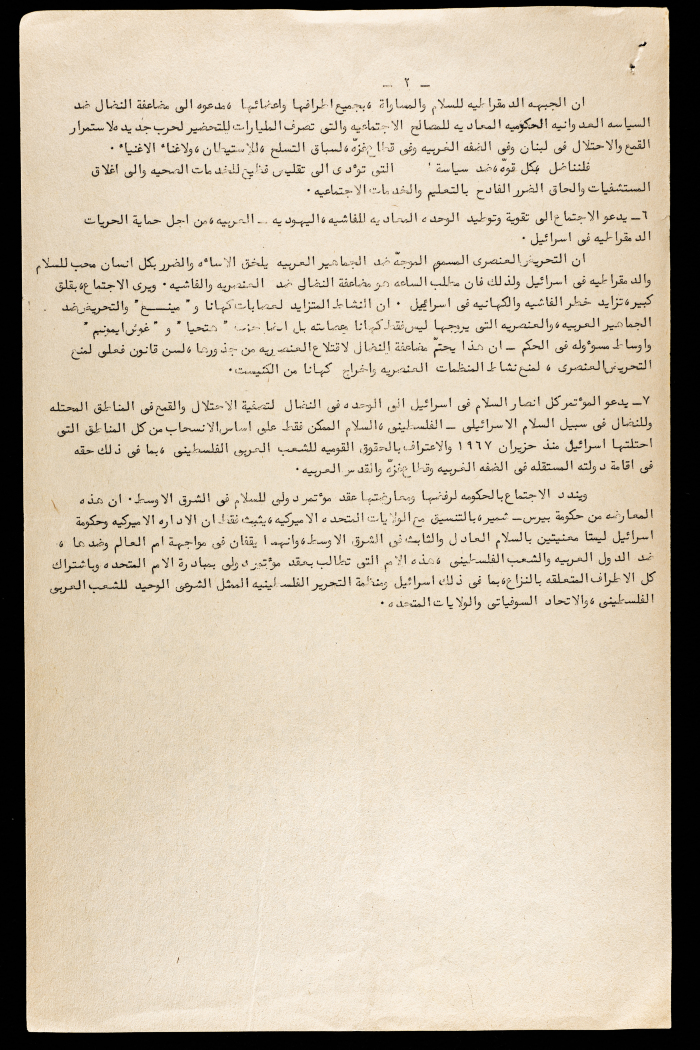 — ٢ —
ان الجبهه الدمقراطيه للسلام والمساواة ، بجميع اطرافها واعضائها ، مدعوه الى مضاعفة النضال ضد
السياسه العدوانيه الحكوميه المعاديه للمصالح الاجتماعيه والتى تصرف المليارات للتحضير لحرب جديده لاستمرار
القمع والاحتلال فى لبنان وفى الضفه الغربيه وفى قطاع غزّه لسباق التسلح وللاستيطان ، ولاغناء الاغنياء .
فلنناضل بكل قوّه ضد سياسة التى تؤدى الى تقليص للخدمات الصحيه والى اغلاق
المستشفيات والحاق الضرر الفادح بالتعليم والخدمات الاجتماعيه .
٦ــ يدعو الاجتماع الى تقوية وتوطيد الوحده المعاديه للفاشيه ، اليهوديه ــ العربيه ، من اجل حماية الحريات
الدمقراطيه فى اسرائيل .
ان التحريض العنصرى المسموم الموجّه ضد الجماهير العربيه يلحق الاساءه والضرر بكل انسان محب للسلام
والدمقراطيه فى اسرائيل ولذلك فان مطلب الساعه هو مضاعفة النضال ضد العنصريه والفاشيه . ويرى الاجتماع ، بقلق
كبير ، تزايد خطر الفاشيه والكهانيه فى اسرائيل . ان النشاط المتزايد لعصابات كهانا و " مينـــع " والتحريض ضد
الجماهير العربيه ، والعنصريه التى يروجها ليس فقط كهانا وعصابته بل ايضا " هتحيا " و " غوش ايمونيم "
واوساط مسؤوله فى الحكم ــ ان هذا يحتمّ مضاعفة النضال لاقتلاع العنصريه من جذورها ، لسن قانون فعلى لمنع
التحريض العنصرى ، لمنع نشاط المنظمات العنصريه واخراج كهانا من الكنيست .
٧ــ يدعو المؤتمر كل انصار السلام فى اسرائيل الى الوحده فى النضال لتصفية الاحتلال والقمع فى المناطق المحتله
وللنضال فى سبيل السلام الاسرائيلى ــ الفلسطينى ، السلام الممكن فقط على اساس الانسحاب من كل المناطق التى
احتلتها اسرائيل منذ حزيران ١٩٦٧ والاعتراف بالحقوق القوميه للشعب العربى الفلسطينى ، بما فى ذلك حقه
فى اقامة دولته المستقله فى الضفه الغربيه وقطاع غزّه والقدس العربيه .
ويندد الاجتماع بالحكومه لرفضها ومعارضتها عقد مؤتمر دولى للسلام فى الشرق الاوسط . ان هذه
المعارضه من حكومة بيرس ــ شمير ، بالتنسيق مع الولايات المتحده الاميركيه ، يثبت فقط ان الاداره الاميركيه وحكومة
اسرائيل ليستا معنيتين بالسلام العادل والثابت فى الشرق الاوسط ، وانهما يقفان فى مواجهة امم العالم وضدها ،
ضد الدول العربيه والشعب الفلسطينى ، هذه الامم التى تطالب بعقد مؤتمر دولى بمبادرة الامم المتحده وباشتراك
كل الاطراف المتعلقه بالنزاع ، بما فى ذلك اسرائيل ومنظمة التحرير الفلسطينيه الممثل الشرعى الوحيد للشعب العربى
الفلسطينى ، والاتحاد السوفياتى والولايات المتحده .